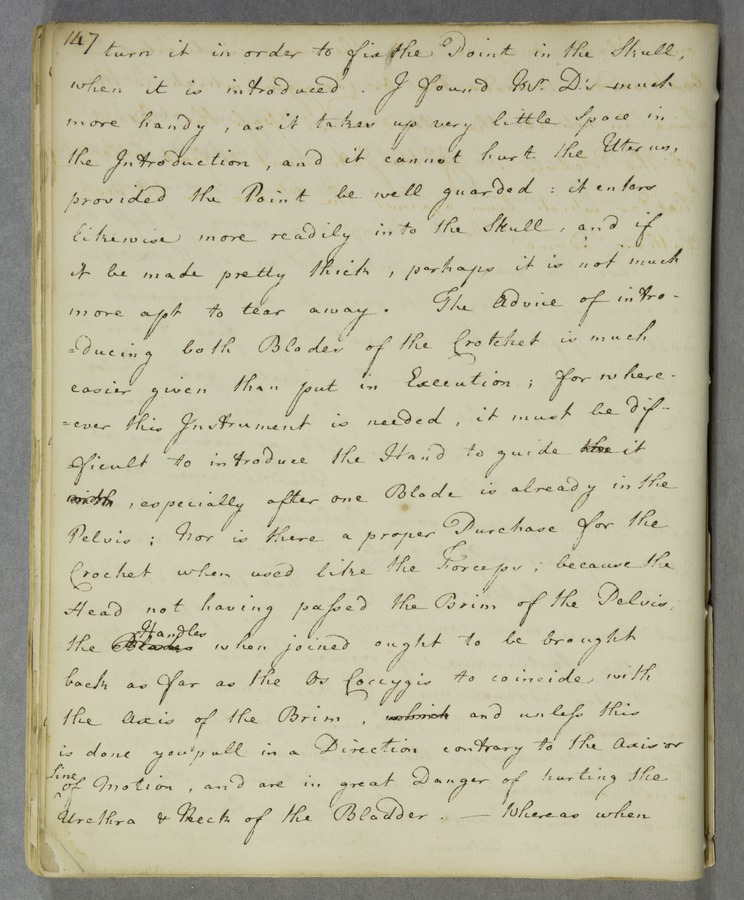 147
turn it in order to fix the Point in the Skull,
when it is introduced. I found Mr. D's much
more handy, as it takes up very little Space in
the Introduction, and it cannot hurt the Uterus,
provided the Point be well guarded: it enters
likewise more readily into the Skull, and if
it be made pretty thick, perhaps it is not much
more apt to tear away. The Advice of intro-
=ducing both Blades of the Crotchet is much
easier given than put in Execution; for where-
=ever this Instrument is needed, it must be dif-
ficult to introduce the Hand to guide the it
with, especially after one Blade is already in the
Pelvis; Nor is there a proper Purchase for the
Crochet when used like the Forceps; because the
Head not having paſsed the Brim of the Pelvis,
the Blades Handles when joined ought to be brought
back as far as the Os Coccygis to coincide with
the Axis of the Brim, which and unleſs this
is done you pull in a Direction contrary to the Axis or
Line of Motion, and are in great Danger of hurting the
Urethra & Neck of the Bladder. — Whereas when